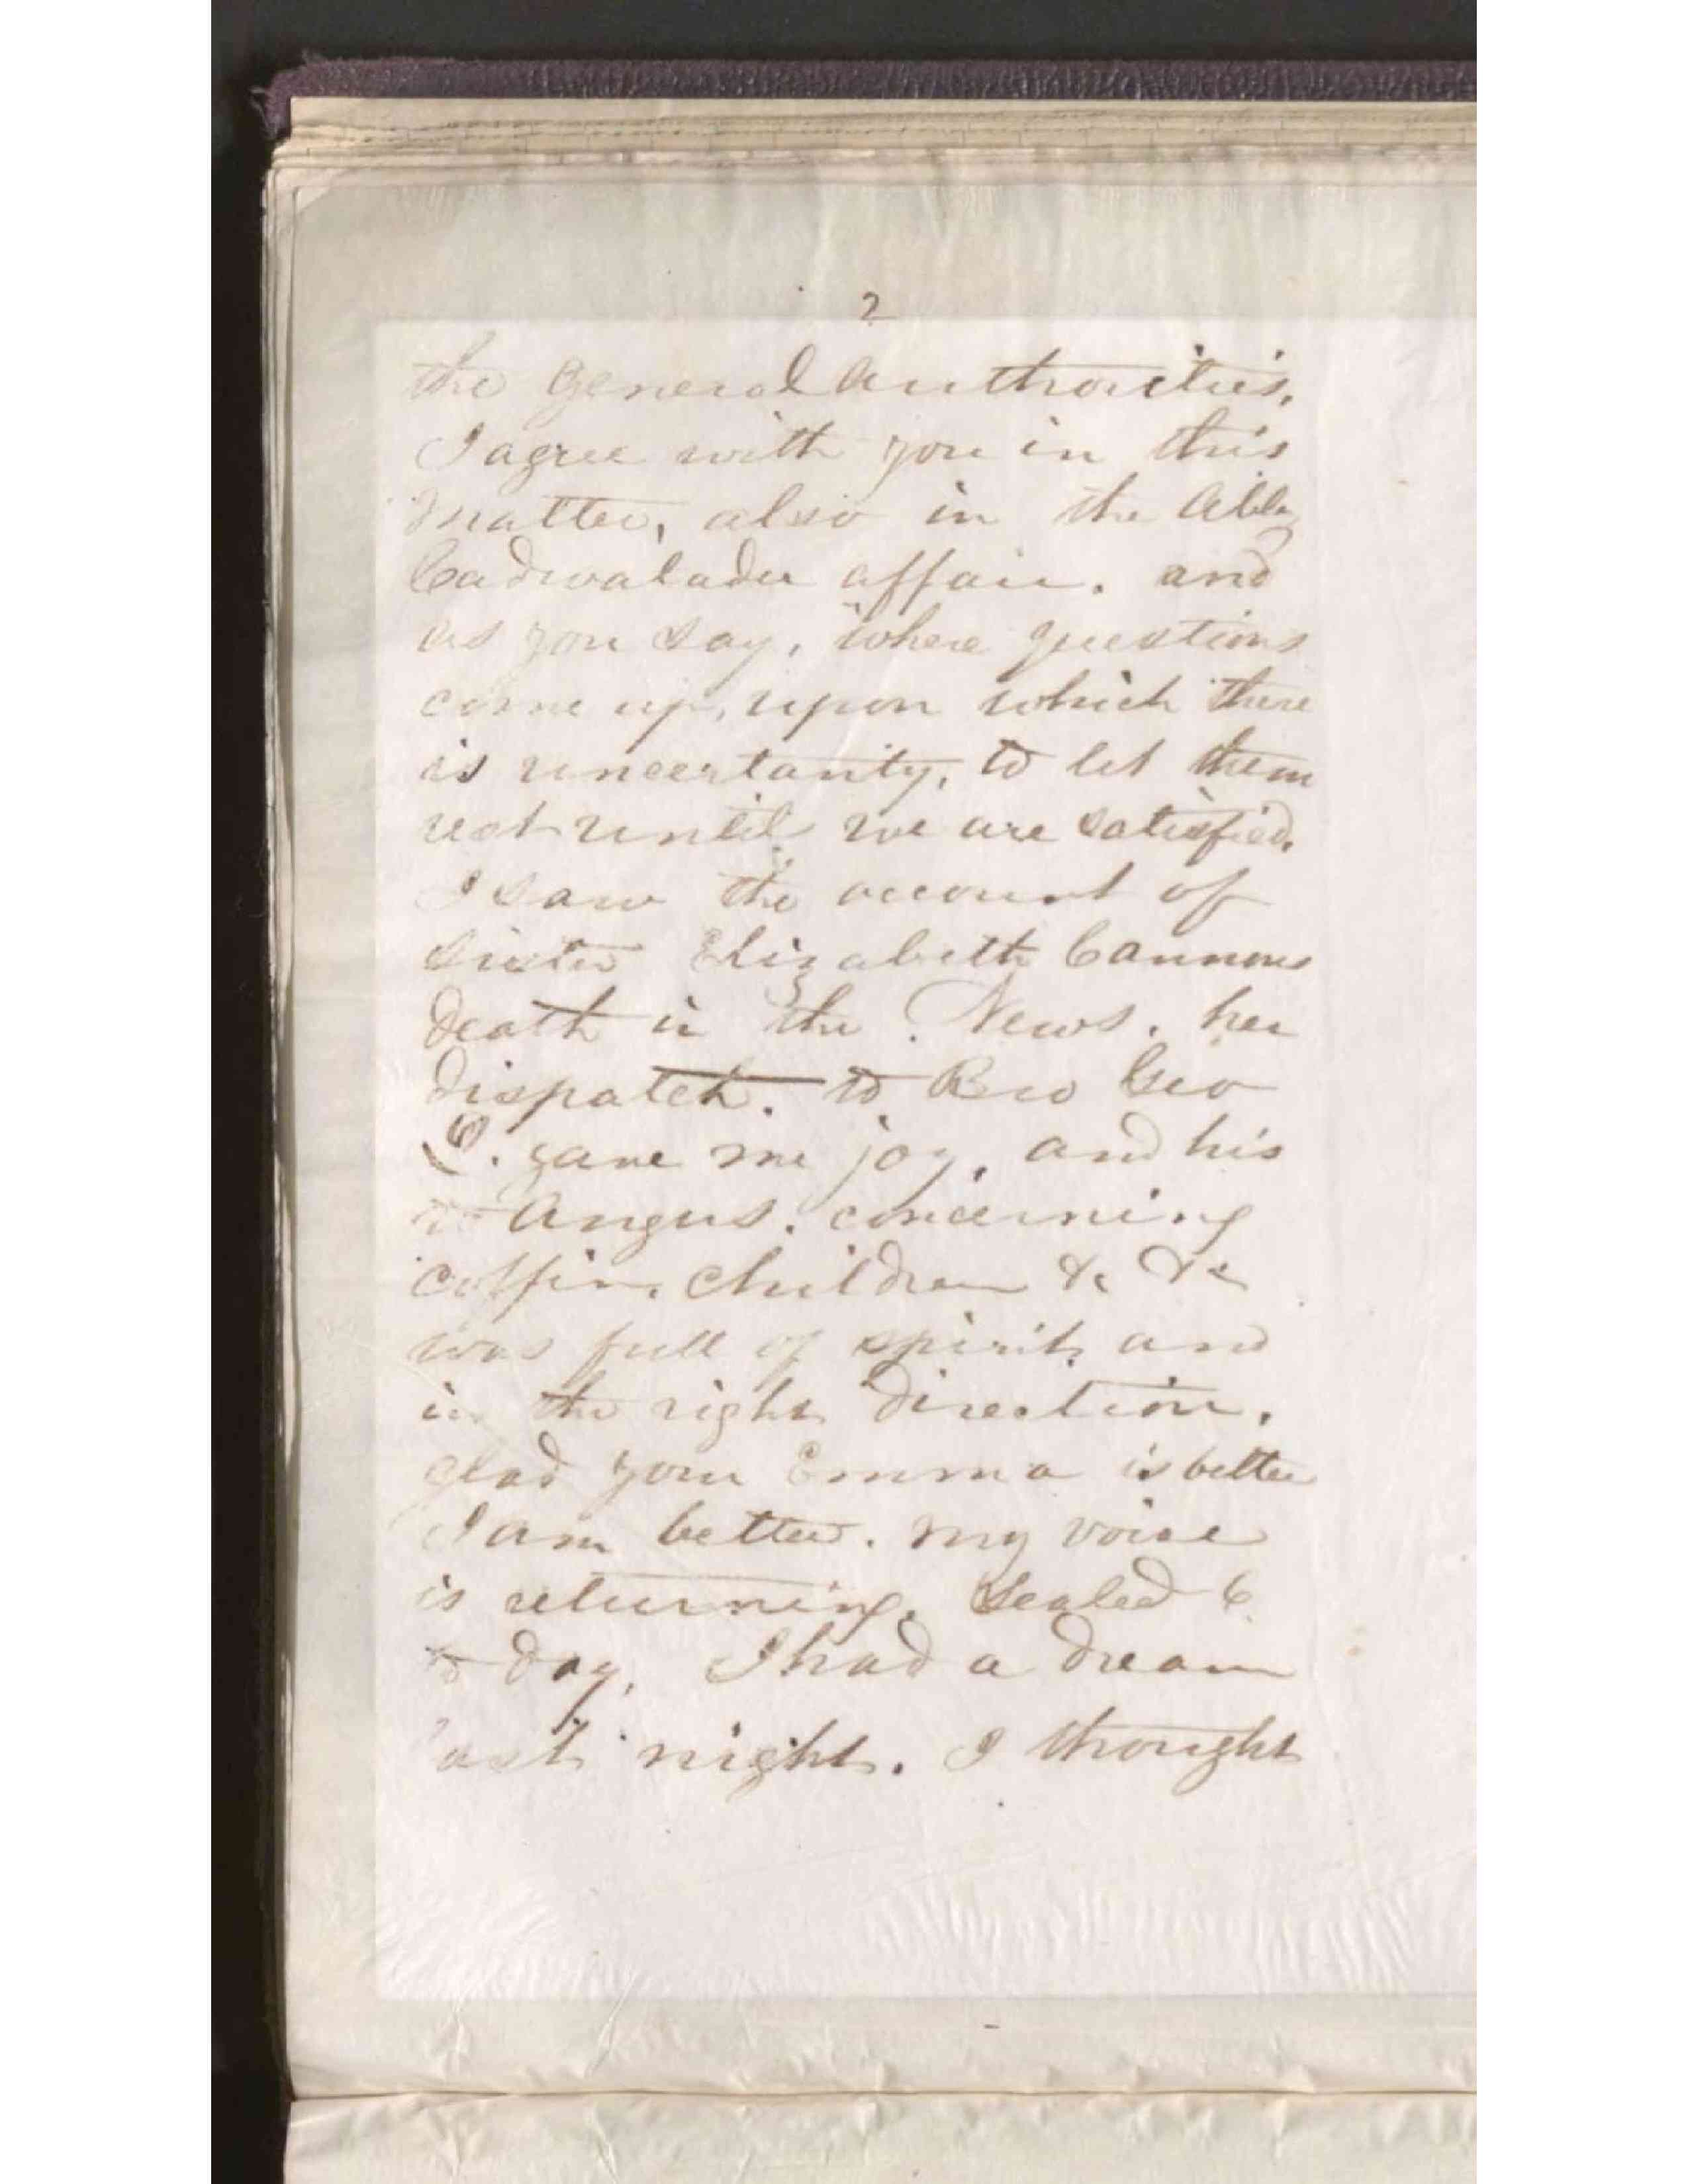 2
the General Authorities,
I agree with you in this
matter, also in the
Cadwalader affair. and
as you say, where questions
come up, upon which there
is uncertanity, to let them
rest until we are satisfied.
I saw the account of
sister Elizabeth Cannons
death in the News. her
dispatch. to Bro Geo
Q. gave me joy, and his
to Angus. concerning
coffin, children &c &c
was full of spirit, and
in the right direction.
glad your Emma is better
I am better. my voice
is returning. Sealed 6
to day, I had a dream
last night. I thought